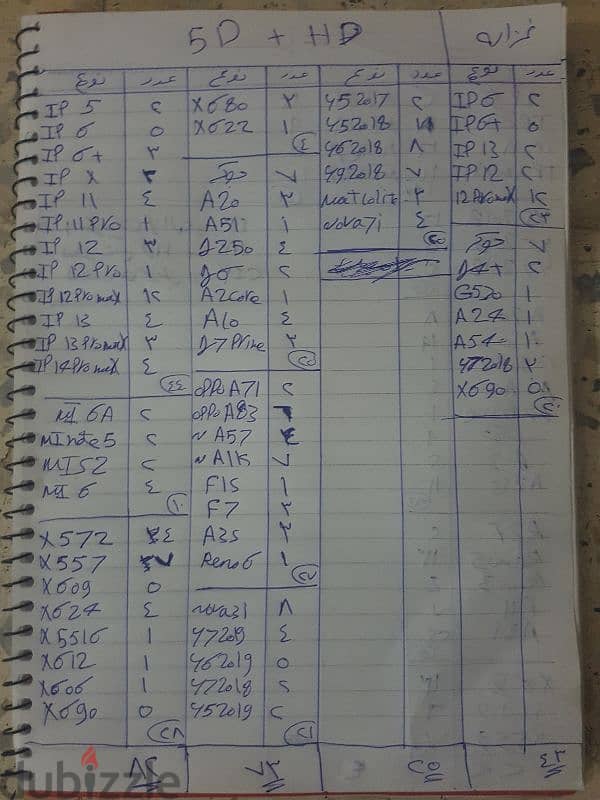 5D + HD
نوع عدد نوع عدد نوع عدد نوع عدد
IP 5 ٢ X680 ٢ Y52017 ٢ IP6 ٢
IP 6 ٥ X622 ١ Y52018 IP6+ ٥
IP 6+ ٣ ٤ Y62018 ٨ IP 13 ٢
IP X ٣ ٧ Y92018 ٧ IP 12 ٢
IP 11 ٤ A20 ٣ 12 Promax ١٢
IP 11 Pro ١ A51 ١ Nova7i ٤
IP 12 ٣ J250 ٤ ٧
IP 12 Pro ١ J6 ٢ J4+ ٢
IP 12 Pro max ١٢ A2core ١ G530 ١
IP 13 ٤ A10 ٤ A24 ١
IP 13 Promax ٣ J7 Prime ٣ A54 ١
IP 14 Pro max ٤ ٢٥ Y72018 ٢
٤٤ OPPO A71 ٢ X690 ٥
MI 6A ٢ OPPO A83
MI note 5 ٢ A57
MI S2 ٢ A1K ٧
MI 6 ٤ F1S ١
١٠ F7 ٢
X572 ٤ A3S ٢
X557 ٧ Reno6 ١
X609 ٥
X624 ٤ nova3i ٨
X5516 ١ Y7209 ٤
X612 ١ Y62019 ٥
X606 ١ Y72018 ٢
X690 ٥ Y52019 ٢
٢٨ ٢١
٨٢ ٧٢ ٢٥ ٤٣
dubizzle